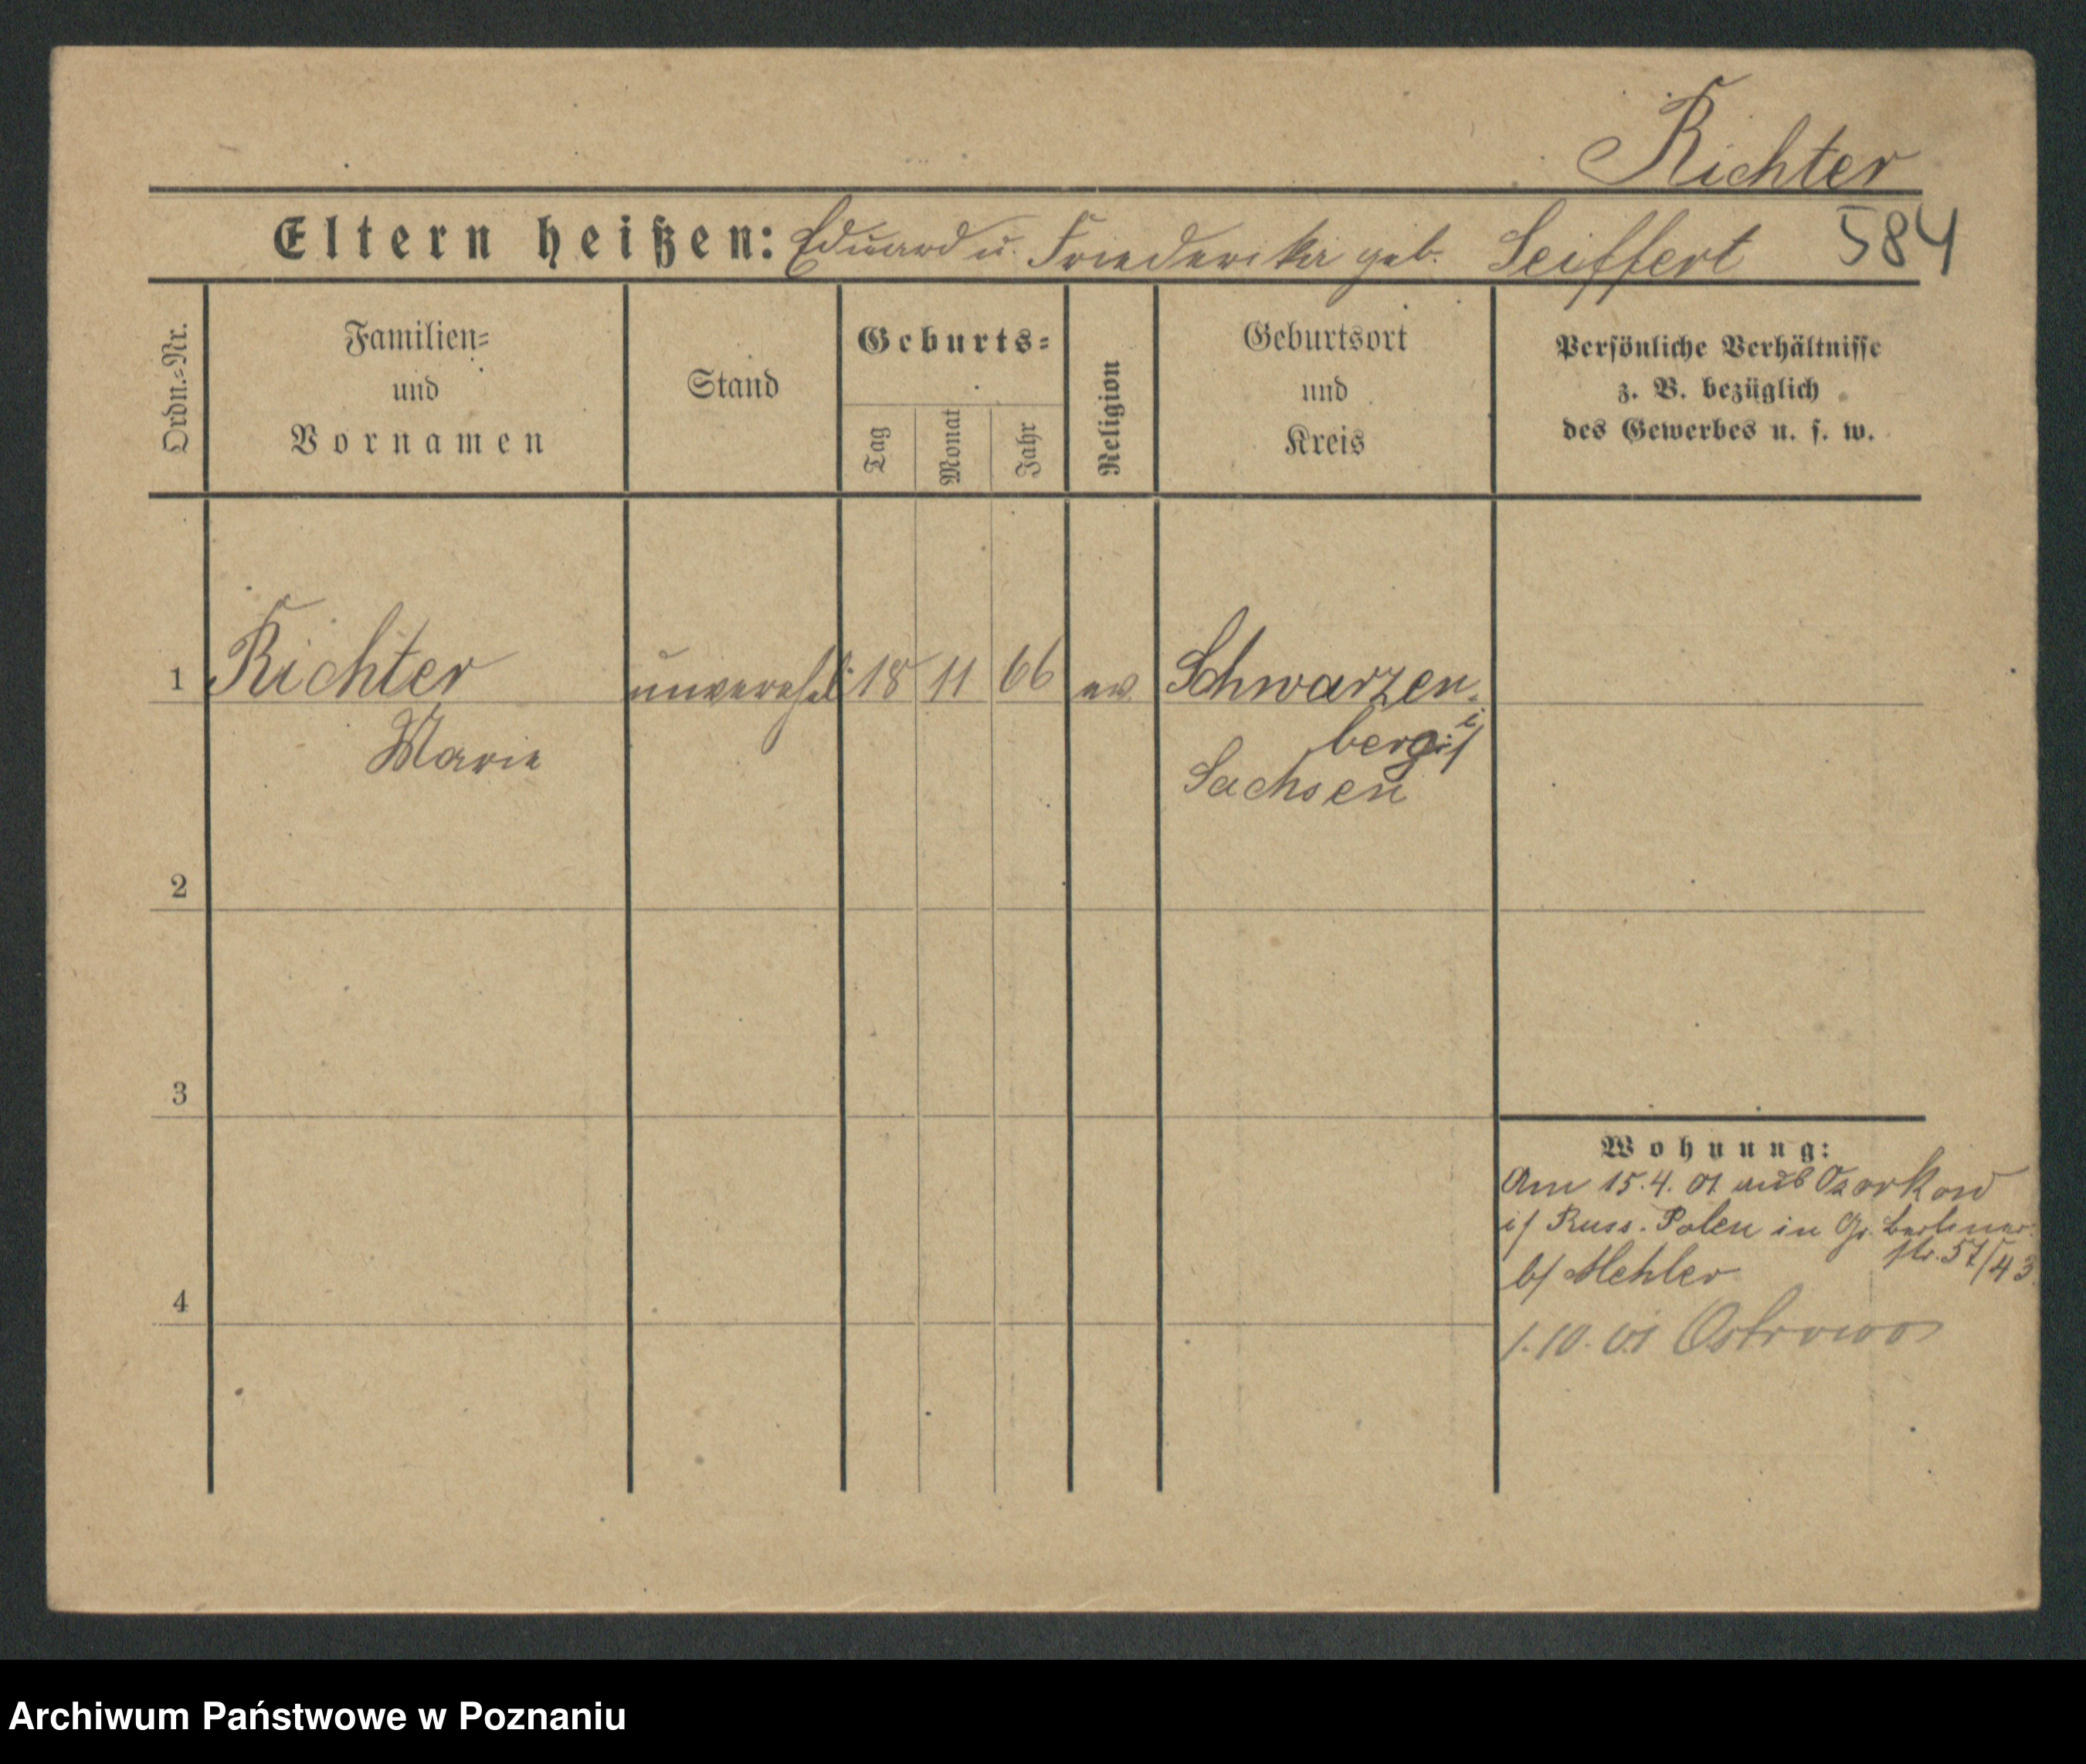 Richter
Eltern heißen: Eduard u. Friederika geb. Seiffert 584
Ordn.-Nr.
Familien-
und
Vornamen
Stand
Geburts-
Tag
Monat
Jahr
Religion
Geburtsort
und
Kreis
Persönliche Verhältnisse
z. B. bezüglich
des Gewerbes u. s. w.
1 Richter unverehel. 18 11 66 ev. Schwarzen-
Marie
berg i/
Sachsen
2
3
4
Wohnung:
Am 15.4.01 aus Ozorkow
i/ Russ. Polen in Gr. Berliner-
str. 57/43
b/ Mehler
1.10.01 Ostrowo
Archiwum Państwowe w Poznaniu